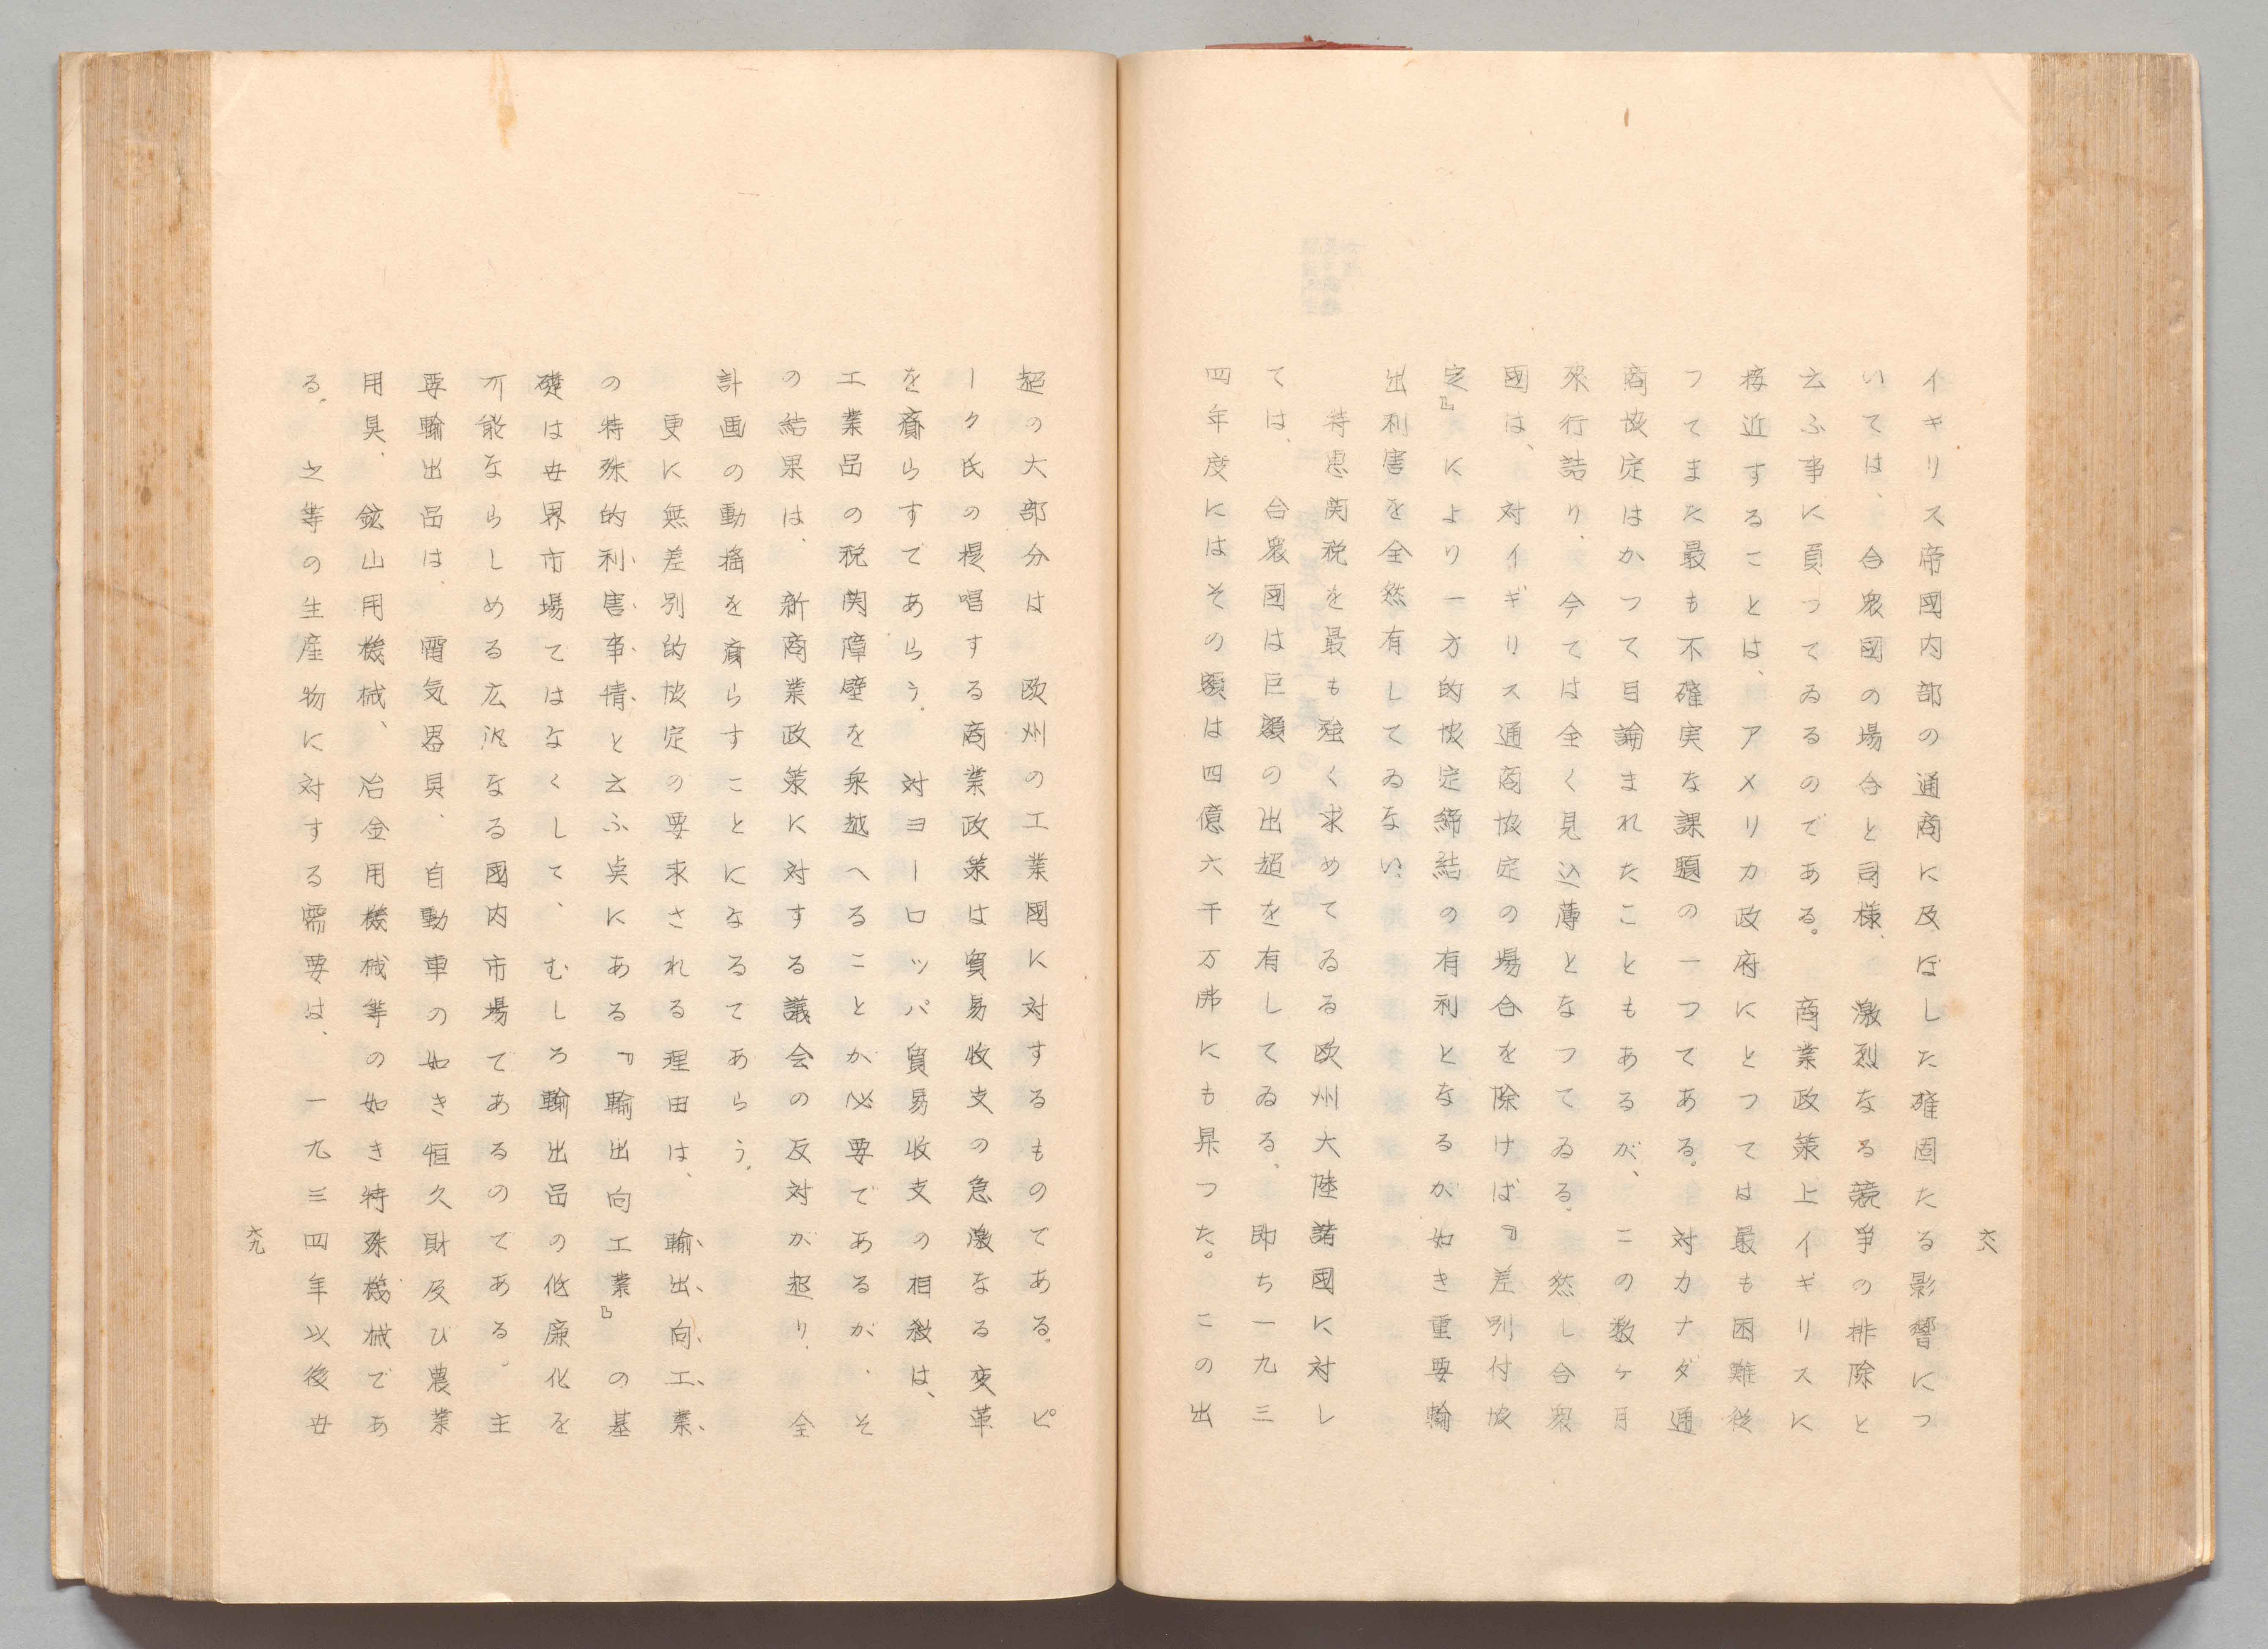 六八
イギリス帝國内部の通商に及ぼした確固たる影響につ
いては、合衆國の場合と司様、激烈なる競爭の排除と
云ふ事に頁つてゐるのである。商業政策上イギリスに
接近することは、アメリカ政府にとつては最も困難從
つてまた最も不確実な課題の一つてある。対カナダ通
商协定はかつて目論まれたこともあるが、この数ヶ月
來行詰り、今ては全く見込薄となつてゐる。然し合衆
國は、対イギリス通商协定の場合を除けば『差別付协
定』により一方的协定締結の有利となるが如き重要輸
出利害を全然有してゐない
特恵関税を最も強く求めてゐる欧州大陸諸國に対し
ては、合衆國は巨額の出超を有してゐる、即ち一九三
四年度にはその額は四億六千万弗にも昇つた。この出
超の大部分は欧州の工業國に対するものてある。ピ
ーク氏の提唱する商業政策は貿易收支の急激なる変革
を齎らすてあらう。対ヨーロッパ貿易收支の相殺は、
工業品の税関障壁を乗越へることか必要であるが、そ
の結果は、新商業政策に対する議会の反対が起り、全
計画の動搖を齎らすことになるてあらう。
更に無差別的协定の要求される理由は、輸出向工業
の特殊的利害事情と云ふ奌にある『輸出向工業』の基
礎は世界市場てはなくして、むしろ輸出品の低廉化を
可能ならしめる広汎なる國内市場てあるのてある。主
要輸出品は、電気器具、自動車の如き恒久財及び農業
用具、鉱山用機械、冶金用機械等の如き特殊機械であ
る。之等の生産物に対する需要は、一九三四年以後世
六九